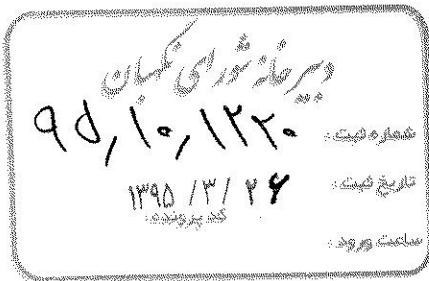 دبیرخانه شورای نگهبان
شماره ثبت: ۹۵/۱۰/۱۲۲۰
تاریخ ثبت: ۱۳۹۵/۳/۲۶
کد پرونده:
ساعت ورود: